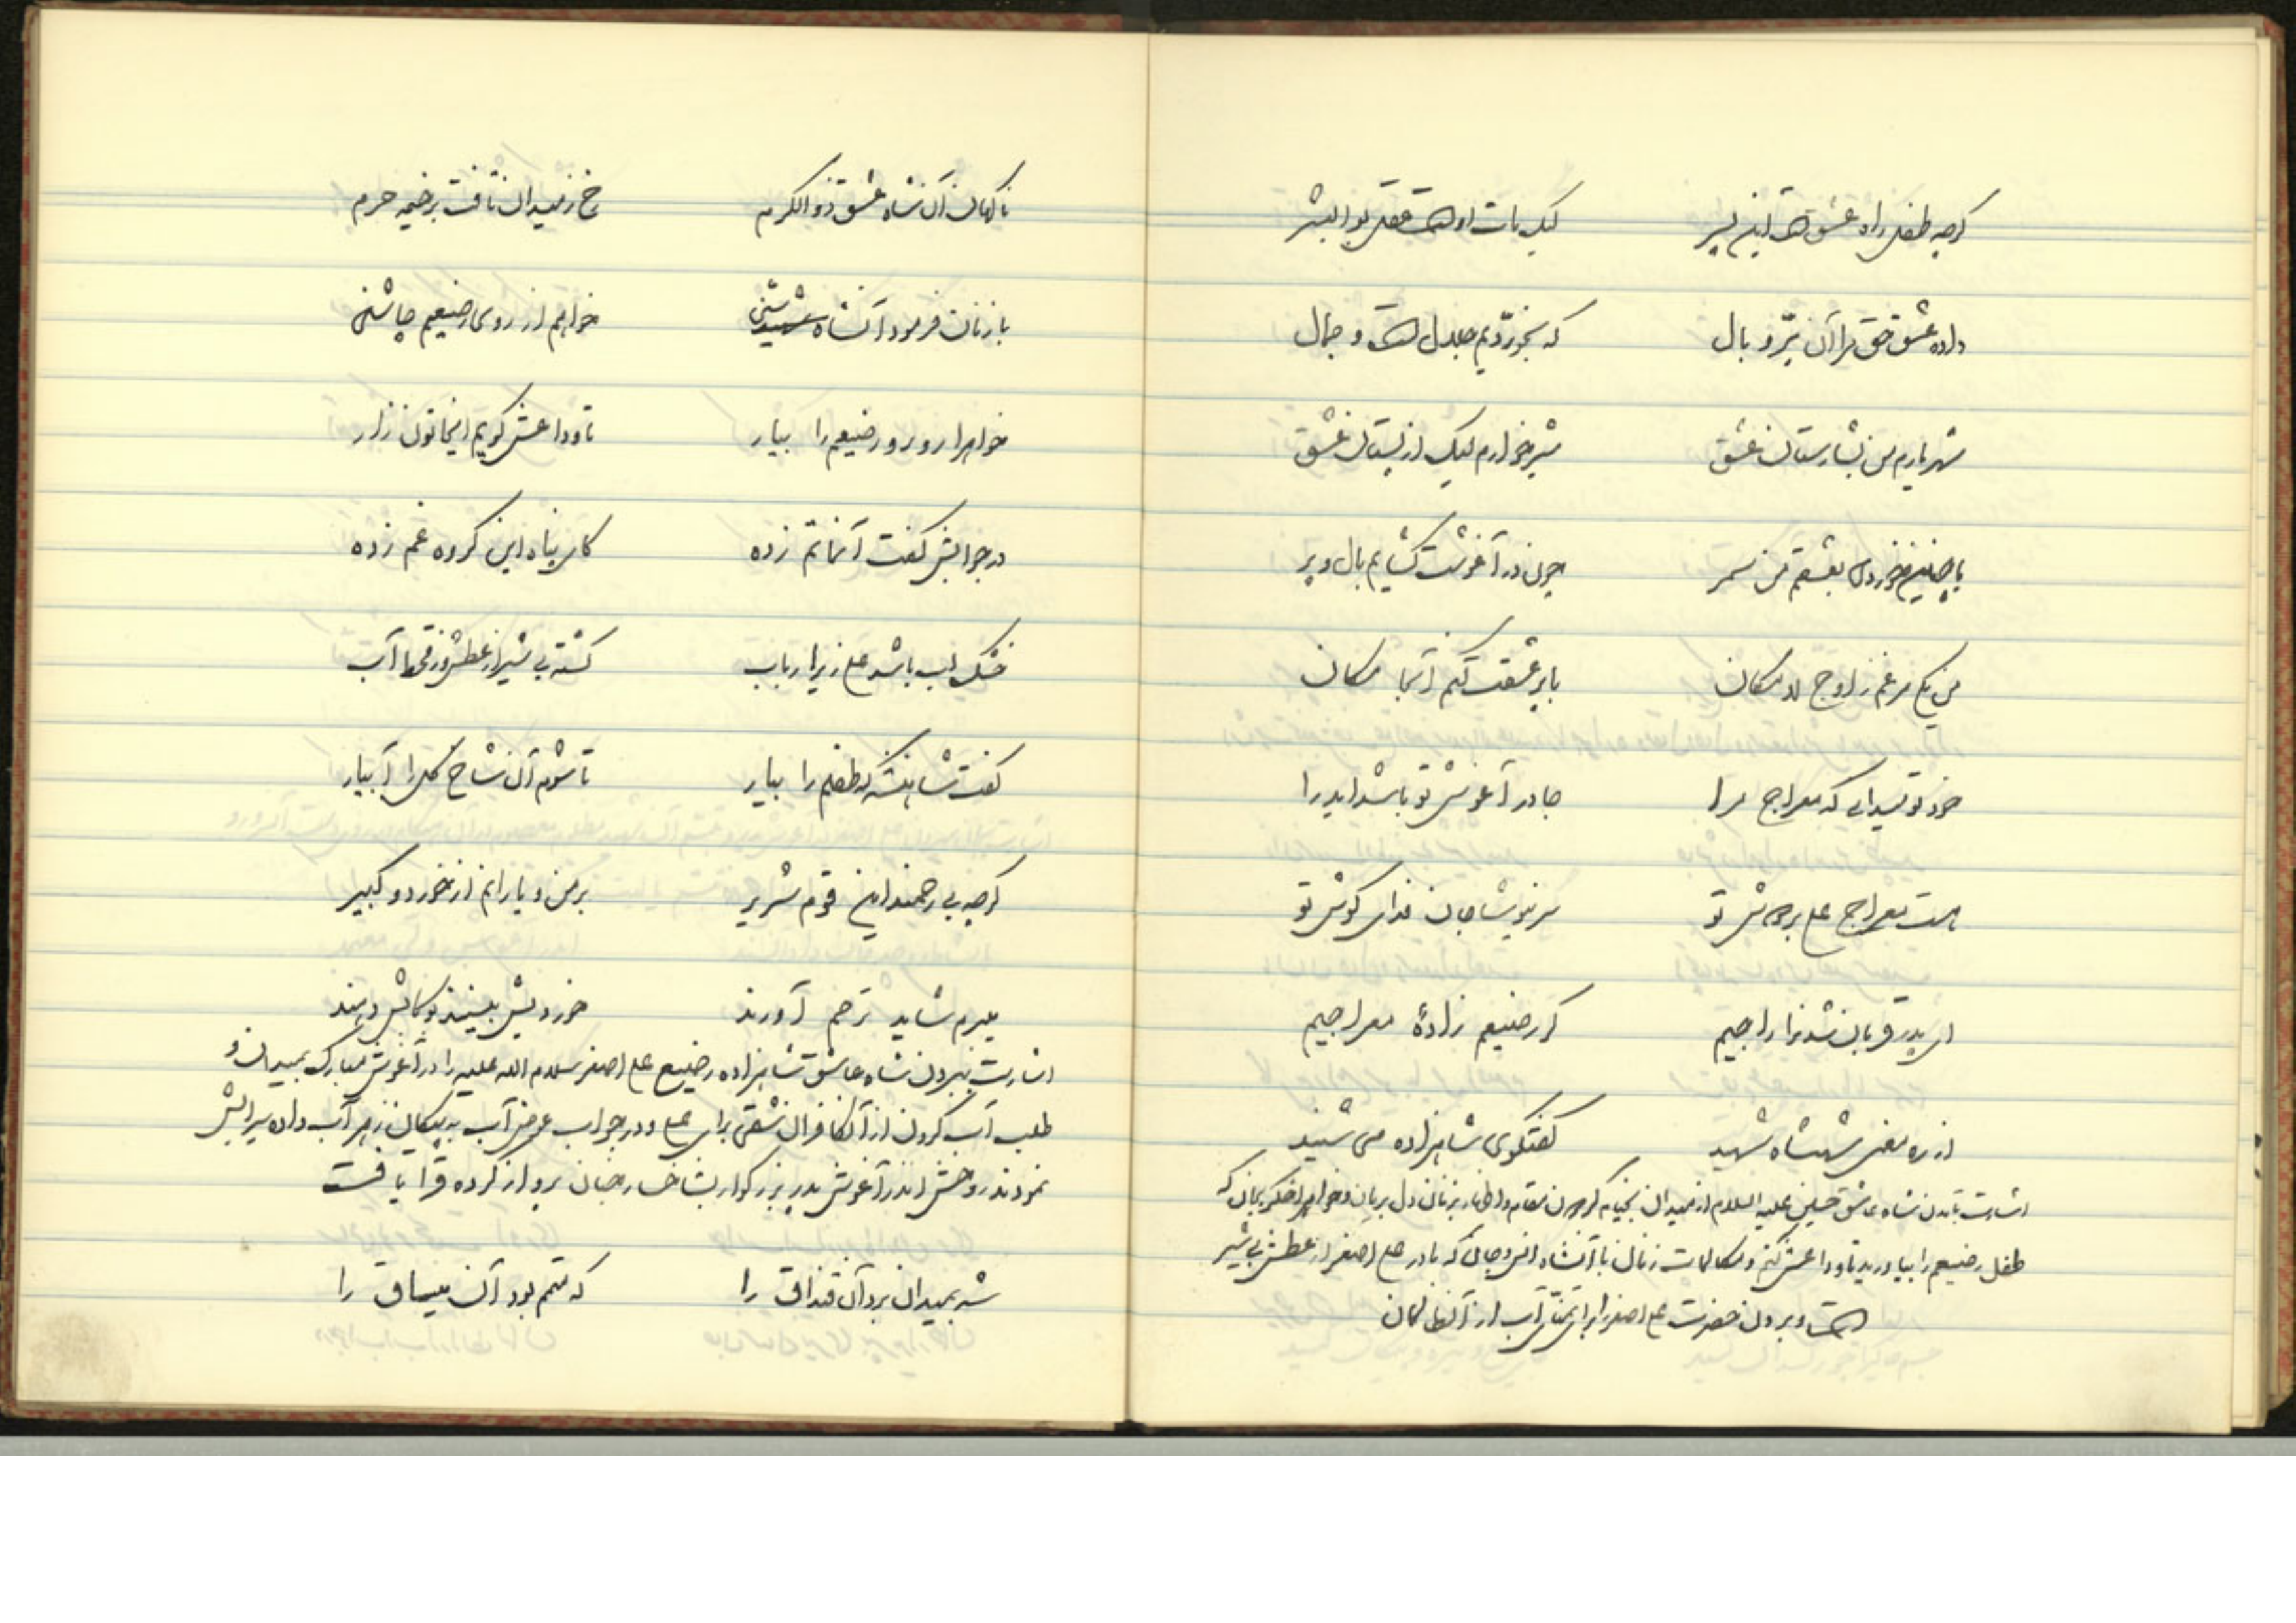 گرچه طفل راه عشق است این پسر لیک مات اوست عقل بوالبشر
داده عشق حق مرا آن پرّ و بال که نجوردیم جلال است و جمال
شهریارم من بشارستان عشق شیرخوارم لیک از پستان عشق
با چنین خوردی بعشقم من سمر چون در آغوشت گشایم بال و پر
من یکی مرغم ز اوج لامکان با پر عشقت کنم آنجا مکان
خود تو میدانی که معراج مرا جا در آغوش تو باشد ایدرا
هست معراج علی بر دوش تو سر نیوشا جان فدای گوش تو
ای پدر قربان شدنرا راجیم گر رضیعم زادهٔ معراجیم
از ره معنی شهنشاه شهید گفتگوی شاهزاده می شنید
اشارت بآمدن شاه عاشق حسین علیه السلام از میدان بخیام گردون مقام و اظهار بزنان دل بریان و خواهر جگر بریان که
طفل رضیعم را بیاورید تا وداعش کنم و مکالمات زنان با آنشاه انس و جان که مادر علی اصغر از عطش بی شیر
است و بردن حضرت علی اصغر را برای تمنّای آب از آنظالمان
ناگهان آن شاه عشق ذوالکرم رخ ز میدان تافت بر خیمه حرم
با زنان فرمود آنشاه شنی خواهم از روی رضیعم چاشنی
خواهرا رو رو رضیعم را بیار تا وداعش گویم ایخاتون زار
در جوابش گفت آنماتم زده کای پناه این گروه غم زده
خشک لب باشد علی زیرا رباب گشته بی شیر از عطش در قحط آب
گفت شاهنشه که طفلم را بیار تا شوم آن شاخ گل را آبیار
گرچه بی رحمند این قوم شریر بر من و یارانم از خورد و کبیر
میبرم شاید ترحم آورند خوردیش بینند و کامش دهند
اشارت ببردن شاه عاشق شاهزاده رضیع علی اصغر سلام الله علیه را در آغوش مبارک بمیدان و
طلب آب کردن از آنکافران شقی برای علی و در جواب عوض آب به پیکان زهر آب داده سیرابش
نمودند روحش اندر آغوش پدر بزرگوار بشاخسار جنان پرواز کرده قرار یافت
شه بمیدان برد آن قنداق را که متمم بود آن میساق را